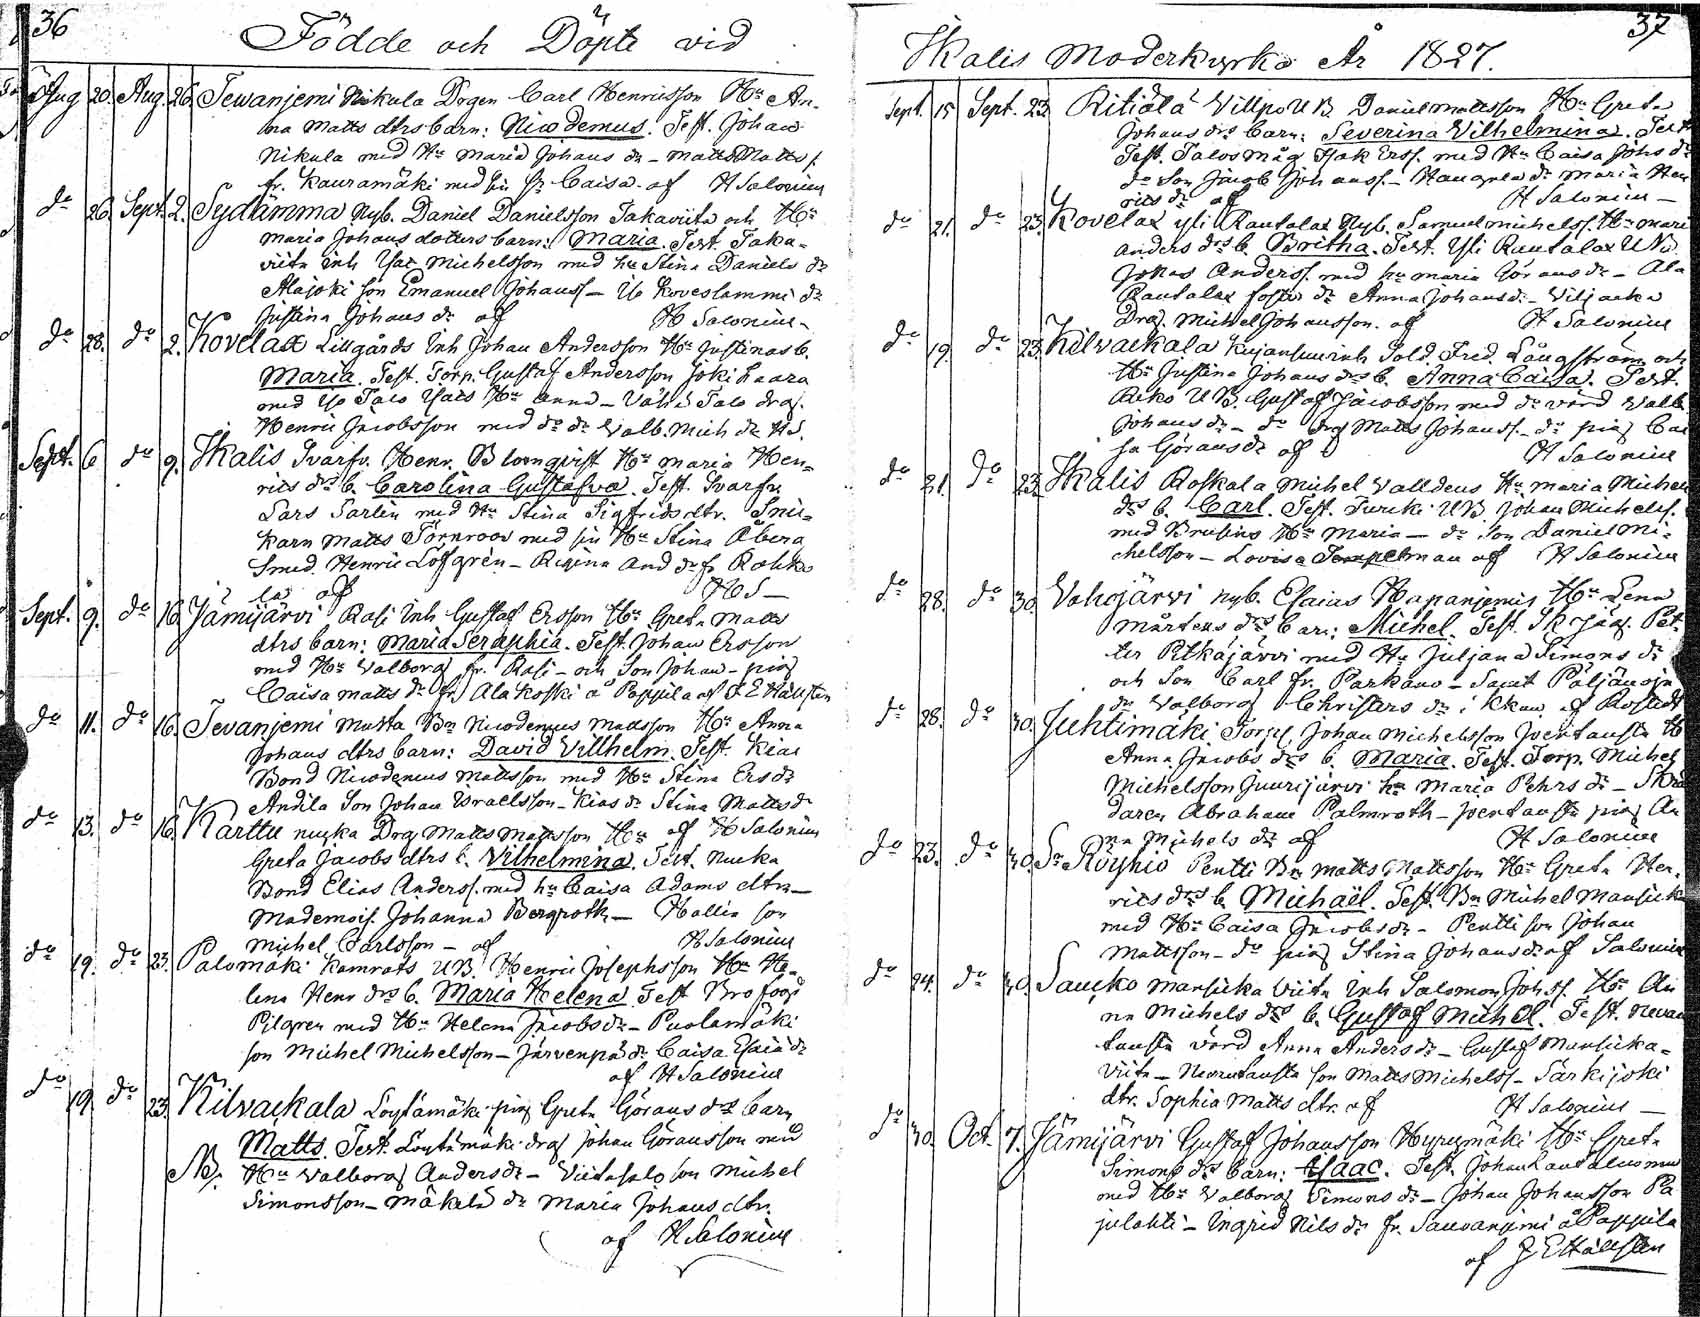 36
Födde och Döpte vid
Aug 20. Aug. 26. Tewanjemi Nikula Drgen Carl Henricsson Hu An-
na Matts dtrs barn: Nicodemus. Test. Johan
Nikula med Hu Maria Johans dr – Matts Matts s.
fr. Kauramäki med sin Sr Caisa. af H Salonius
do 26. Sept. 2. Sydämma Nyb. Daniel Danielsson Takaviita och Hu
Maria Johans dotters barn: Maria. Test. Taka-
viita inh Isac Michelsson med hu Stina Daniels dr
Alajoki son Emanuel Johanss – Yb Koveslammi dr
Justina Johans dr af H Salonius
do 28. do 2. Kovelax Lillgårds Inh Johan Andersson Hu Justinas b.
Maria. Test. Torp. Gustaf Andersson Joki Laara
med Yli Talo Isacs Hu Anna – Vähä Talo drg.
Henric Jacobsson med do dr Valb. Mich dr HS.
Sept. 6 do 9. Ikalis Svarfv. Henr. Blomqvist Hu Maria Hen-
rics drs b. Carolina Gustafva. Test. Svarfv.
Lars Sarlin med Hu Stina Sigfrids dtr. Snic-
karn Matts Törnroos med sin Hu Stina Åberg
Smed. Henric Löfgrén – Regina And dr fr Rokko
la af HS –
Sept. 9. do 16. Jämijärvi Rasi Inh Gustaf Ersson Hu Greta Matts
dtrs barn: Maria Seraphia. Test. Johan Ersson
med Hu Valborg fr. Rasi – och Son Johan – pig
Caisa Matts dr fr Alakoski å Pappila af J E Hällsten
do 11. do 16. Tevanjemi Musta Bn Nicodemus Mattsson Hu Anna
Johans dtrs barn: David Villhelm. Test. Kias
Bond Nicodemus Mattsson med Hu Stina Ers dr
Andila Son Johan Israelsson – Kias dr Stina Matts dr
do 13. do 16. Karttu Nucka Drg Matts Mattsson Hu af H Salonius
Greta Jacobs dtrs b. Vilhelmina. Test. Nucka
Bond Elias Anderss. med hu Caisa Adams dtr –
Mademois. Johanna Bergroth – Hallin son
Michel Carlsson – af H Salonius
do 19. do 23. Palomäki Kamrats UB. Henric Josephsson Hu He-
lena Henr drs b. Maria Helena. Test Brofogd
Pilgren med Hu Helena Jacobs dr – Puolamäki
son Michel Michelsson – Järvenpä dr Caisa Esaiæ dr
af H Salonius
do 19. do 23. Kilvackala Löytämäki pig Greta Görans drs barn
Matts. Test. Löytämäki drg Johan Göransson med
NB. Hu Valborg Anders dr – Viitasalo son Michel
Simonsson – Mäkelä dr Maria Johans dtr.
af H Salonius
37
Ikalis Moderkyrka År 1827.
Sept. 15 Sept. 23. Ritiälä Villpo UB Daniel Mattsson Hu Greta
Johans drs barn: Severina Vilhelmina. Test
Test. Talos måg Isak Erss. med Hu Caisa Johs dr
do Son Jacob Johanss. – Haugela dr Maria Hen
rics dr af H Salonius –
do 21. do 23. Kovelax Yli Rautalax Nyb. Samuel Michelss. Hu Maria
Anders drs b. Britha. Test. Yli Rautalax U Nb.
Jonas Anderss. med hu Maria Görans dr – Ala
Rautalax foster dr Anna Johans dr – Viljacka
Drg. Michel Johansson. af H Salonius
do 19. do 23. Kilvackala Kujansuu inh Sold. Fred. Långström och
Hu Justina Johans drs b. Anna Caisa. Test.
Reko UB. Gustaf Jacobsson med do värd Valb.
Johans dr – do drg Matts Johanss. – do pig Cai
sa Görans dr af H Salonius
do 21. do 23. Ikalis Roskala Michel Valldeus Hu Maria Michels
drs b. Carl. Test. Turcki UB Johan Michelss.
med Brusins Hu Maria – do Son Daniel Mi-
chelsson – Lovisa Tempelman af H Salonius
do 28. do 30. Vahojärvi nyb. Esaias Hapanjemis Hu Lena
Mårtens drs barn: Michel. Test. Sk Jäg. Pet-
ter Pitkäjärvi med Hu Juljana Simons dr
och Son Carl fr. Parkano – Samt Päljänojn
dr Valborg Christers dr i Kkau af Rostedt
do 28. do 30. Juhtimäki Torp. Johan Michelsson Jventausta H
Anna Jacobs drs b. Maria. Test. Torp. Michel
Michelsson Juurijärvi hu Maria Pehrs dr – Skräd
daren Abraham Palmroth – Jventausta pig An
na Michels dr af H Salonius
do 23. do 30. Sr Röyhiö Pentti Bn Matts Mattsson Hu Greta Hen-
rics drs b. Michaël. Test. Bn Michel Mansicka
med Hu Caisa Jacobs dr – Pentti son Johan
Mattsson – do pig Stina Johans dr af Salonius
do 24. do 30. Saucko Mansicka Viita Inh Salomon Johss. Hu An
na Michels drs b. Gustaf Michel. Test. Nevan
tausta värd Anna Anders dr – Gustaf Mansicka-
viita – Nevantausta son Matts Michelss – Särkijoki
dtr. Sophia Matts dtr. af H Salonius –
do 30. Oct. 7. Jämijärvi Gustaf Johansson Hyrymäki Hu Greta
Simons drs barn: Isaac. Test. Johan Lautaluoma
med Hu Valborg Simons dr – Johan Johansson Pa
julahti – Ingrid Nils dr fr. Sauvanjemi å Pappila
af J E Hällsten